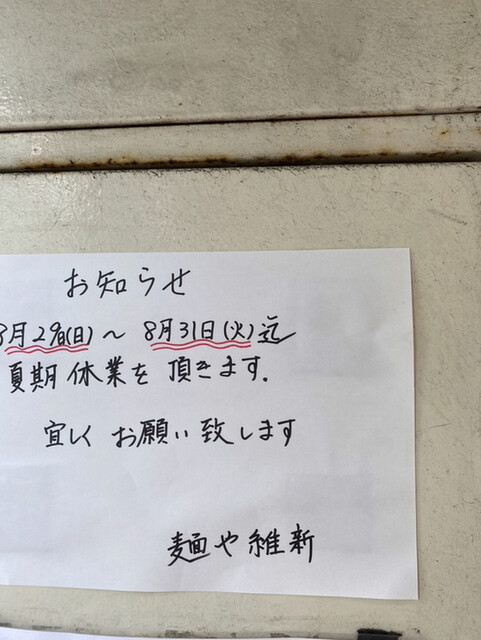 お知らせ
8月29日(日)〜8月31日(火)迄
夏期休業を頂きます.
宜しくお願い致します
麺や維新